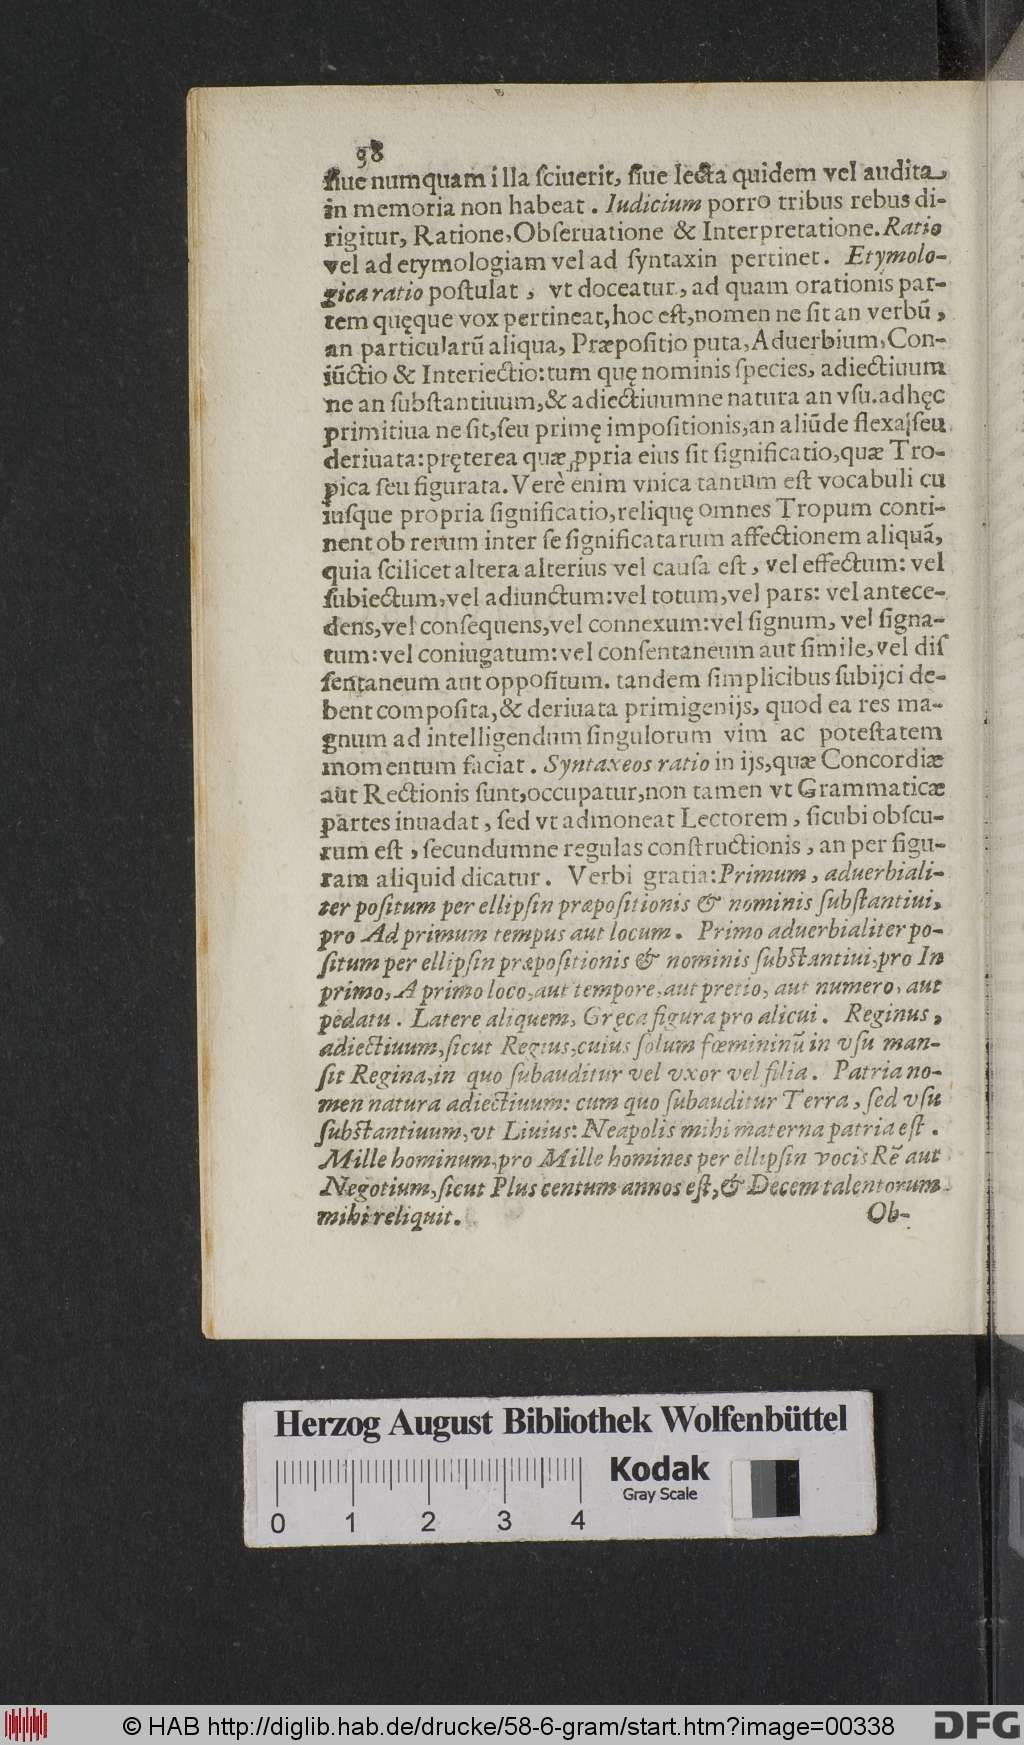 98
ſiue numquam illa ſciuerit, ſiue lecta quidem vel audita
in memoria non habeat. Iudicium porro tribus rebus di-
rigitur, Ratione, Obſeruatione & Interpretatione. Ratio
vel ad etymologiam vel ad ſyntaxin pertinet. Etymolo-
gica ratio poſtulat, vt doceatur, ad quam orationis par-
tem quęque vox pertineat, hoc eſt, nomen ne ſit an verbũ,
an particularũ aliqua, Præpoſitio puta, Aduerbium, Con-
iũctio & Interiectio: tum quę nominis ſpecies, adiectiuum
ne an ſubſtantiuum, & adiectiuumne natura an vſu. adhęc
primitiua ne ſit, ſeu primę impoſitionis, an aliũde flexa ſeu
deriuata: pręterea quæ ꝓpria eius ſit ſignificatio, quæ Tro-
pica ſeu figurata. Verè enim vnica tantum eſt vocabuli cu
iuſque propria ſignificatio, reliquę omnes Tropum conti-
nent ob rerum inter ſe ſignificatarum affectionem aliquã,
quia ſcilicet altera alterius vel cauſa eſt, vel effectum: vel
ſubiectum, vel adiunctum: vel totum, vel pars: vel antece-
dens, vel conſequens, vel connexum: vel ſignum, vel ſigna-
tum: vel coniugatum: vel conſentaneum aut ſimile, vel diſ
ſentaneum aut oppoſitum. tandem ſimplicibus ſubijci de-
bent compoſita, & deriuata primigenijs, quod ea res ma-
gnum ad intelligendum ſingulorum vim ac poteſtatem
momentum faciat. Syntaxeos ratio in ijs, quæ Concordiæ
aut Rectionis ſunt, occupatur, non tamen vt Grammaticæ
partes inuadat, ſed vt admoneat Lectorem, ſicubi obſcu-
rum eſt, ſecundumne regulas conſtructionis, an per figu-
ram aliquid dicatur. Verbi gratia: Primum, aduerbiali-
ter poſitum per ellipſin præpoſitionis & nominis ſubſtantiui,
pro Ad primum tempus aut locum. Primo aduerbialiter po-
ſitum per ellipſin præpoſitionis & nominis ſubſtantiui, pro In
primo, A primo loco, aut tempore, aut pretio, aut numero, aut
pedatu. Latere aliquem, Gręca figura pro alicui. Reginus,
adiectiuum, ſicut Regius, cuius ſolum fœmininũ in vſu man-
ſit Regina, in quo ſubauditur vel vxor vel filia. Patria no-
men natura adiectiuum: cum quo ſubauditur Terra, ſed vſu
ſubſtantiuum, vt Liuius: Neapolis mihi materna patria eſt.
Mille hominum, pro Mille homines per ellipſin vocis Rẽ aut
Negotium, ſicut Plus centum annos eſt, & Decem talentorum
mihi reliquit.
Ob-
Herzog August Bibliothek Wolfenbüttel
Kodak
Gray Scale
0 1 2 3 4
© HAB http://diglib.hab.de/drucke/58-6-gram/start.htm?image=00338
DFG